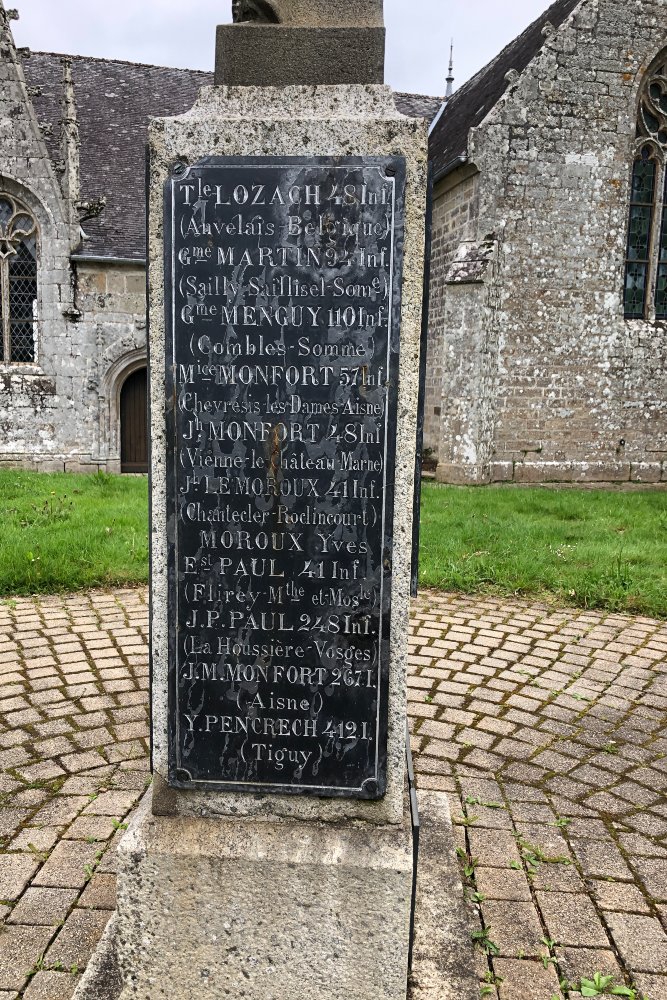 Tle LOZACH 48 Inf.
(Auvelais-Belgique)
Gme MARTIN 94 Inf.
(Sailly-Saillisel-Some)
Gme MENGUY 110 Inf.
(Combles-Somme
Mice MONFORT 57 Inf
(Chevresis les Dames-Aisne)
Jh MONFORT 48 Inf
(Vienne-le-Château-Marne)
Jh LE MOROUX 41 Inf.
(Chantecler-Roclincourt)
MOROUX Yves
Est PAUL 41 Inf.
(Flirey-Mthe et-Mosle)
J.P. PAUL 248 Inf.
(La Houssière-Vosges)
J.M. MONFORT 267 I.
(Aisne)
Y. PENCRECH 412 I.
(Tiguy)